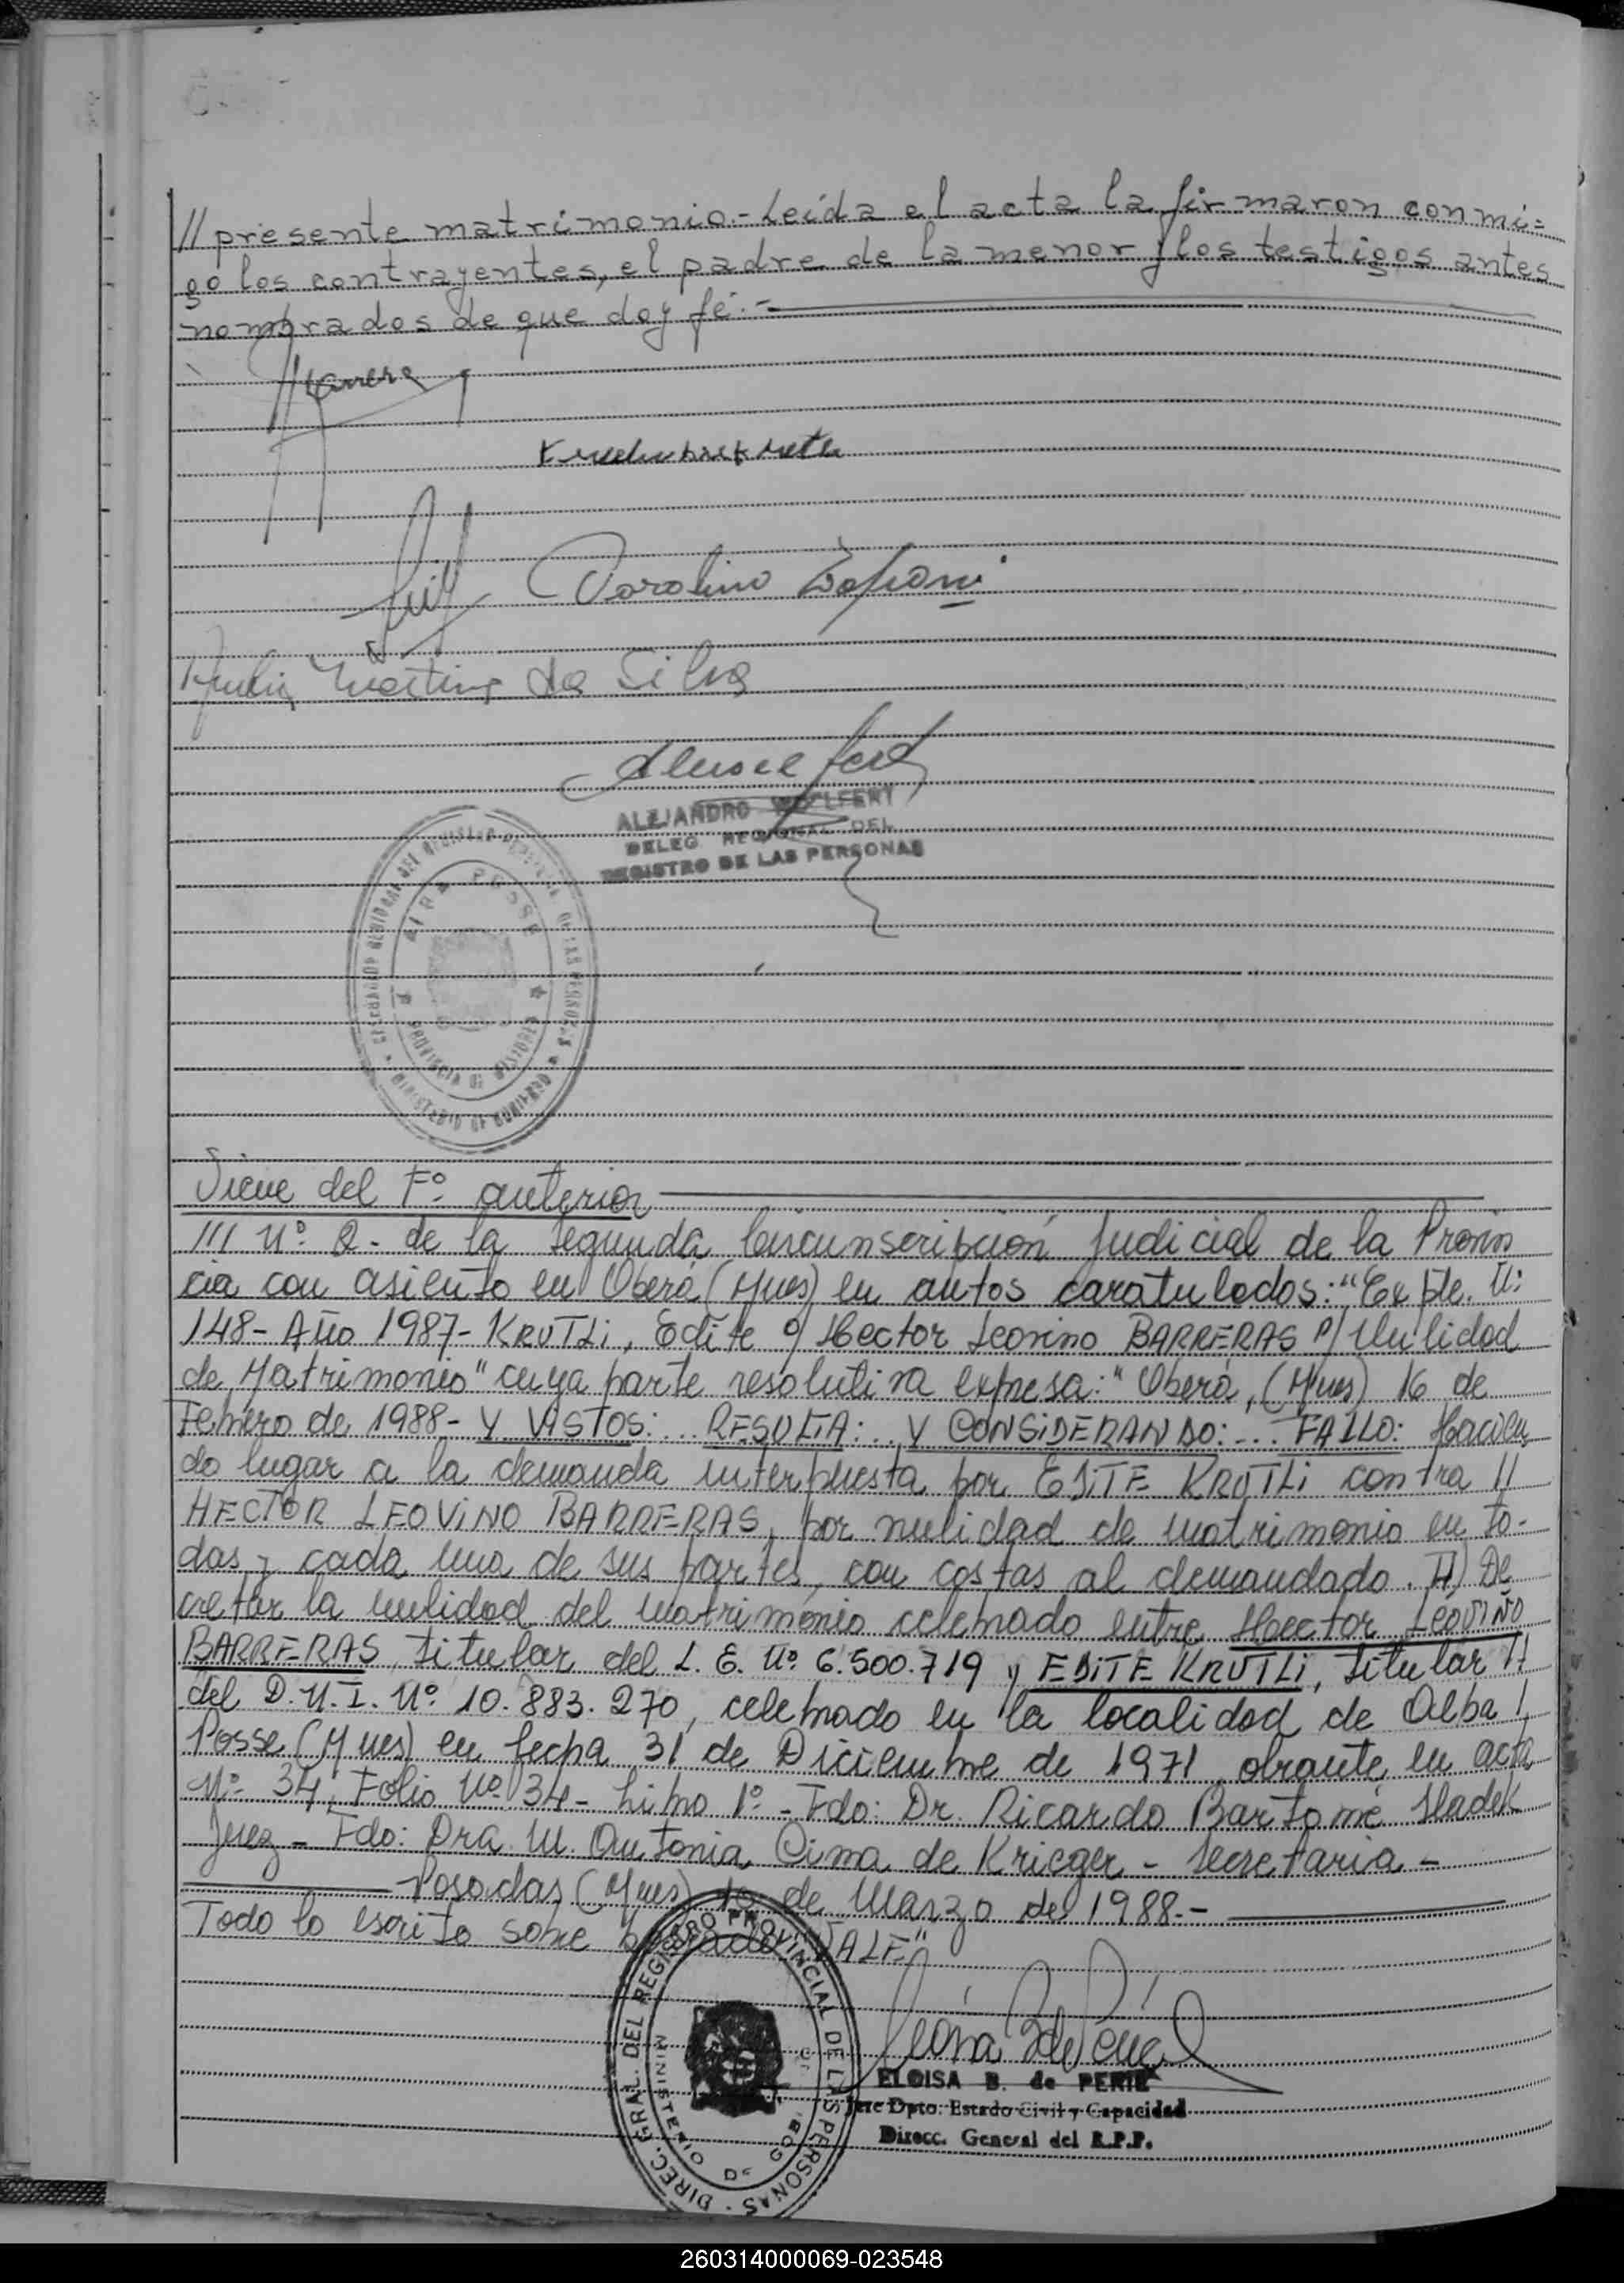 // presente matrimonio.- Leída el acta la firmaron conmi=
go los contrayentes, el padre de la menor y los testigos antes
nombrados de que doy fé.-
Barrera
Carolino
da Silva
ALEJANDRO WOLFERT
DELEG. REGIONAL DEL
REGISTRO DE LAS PERSONAS
ALBA POSSE
PROVINCIA DE MISIONES
Viene del Fº anterior
/// Nº 2- de la Segunda Circunscripción Judicial de la Provin
cia con asiento en Oberá (Mnes) en autos caratulados: "Expte. Nº
148- Año 1987- KRUTLi, Edite c/ Hector Leovino BARRERAS p/ Nulidad
de Matrimonio" cuya parte resolutiva expresa: "Oberá, (Mnes) 16 de
Febrero de 1988- Y VISTOS: ... RESULTA: .. Y CONSiDERANDO: ... FALLO: Hacien
do lugar a la demanda interpuesta por EDiTE KRUTLi contra //
HECTOR LEOViNO BARRERAS, por nulidad de matrimonio en to-
das y cada una de sus partes, con costas al demandado. II) De
cretar la nulidad del matrimonio celebrado entre Hector LEOViNO
BARRERAS, titular del L. E. Nº 6.500.719 y EDiTE KRUTLi, titular //
del D.N.I. Nº 10.883.270, celebrado en la localidad de Alba /
Posse (Mnes) en fecha 31 de Diciembre de 1971, obrante en acta
Nº 34, Folio Nº 34- Libro 1º - Fdo: Dr. Ricardo Bartomé Hladek
Juez - Fdo: Dra M. Antonia Cima de Krieger - Secretaria -
Posadas (Mnes) 10 de Marzo de 1988.-
Todo lo escrito sobre borrado "VALE"
DIREC. GRAL. DEL REGISTRO PROVINCIAL DE LAS PERSONAS
MINISTERIO DE GOB.
ELOISA B. de PERIE
Jefe Dpto. Estado Civil y Capacidad
Direcc. General del R.P.P.
260314000069-023548